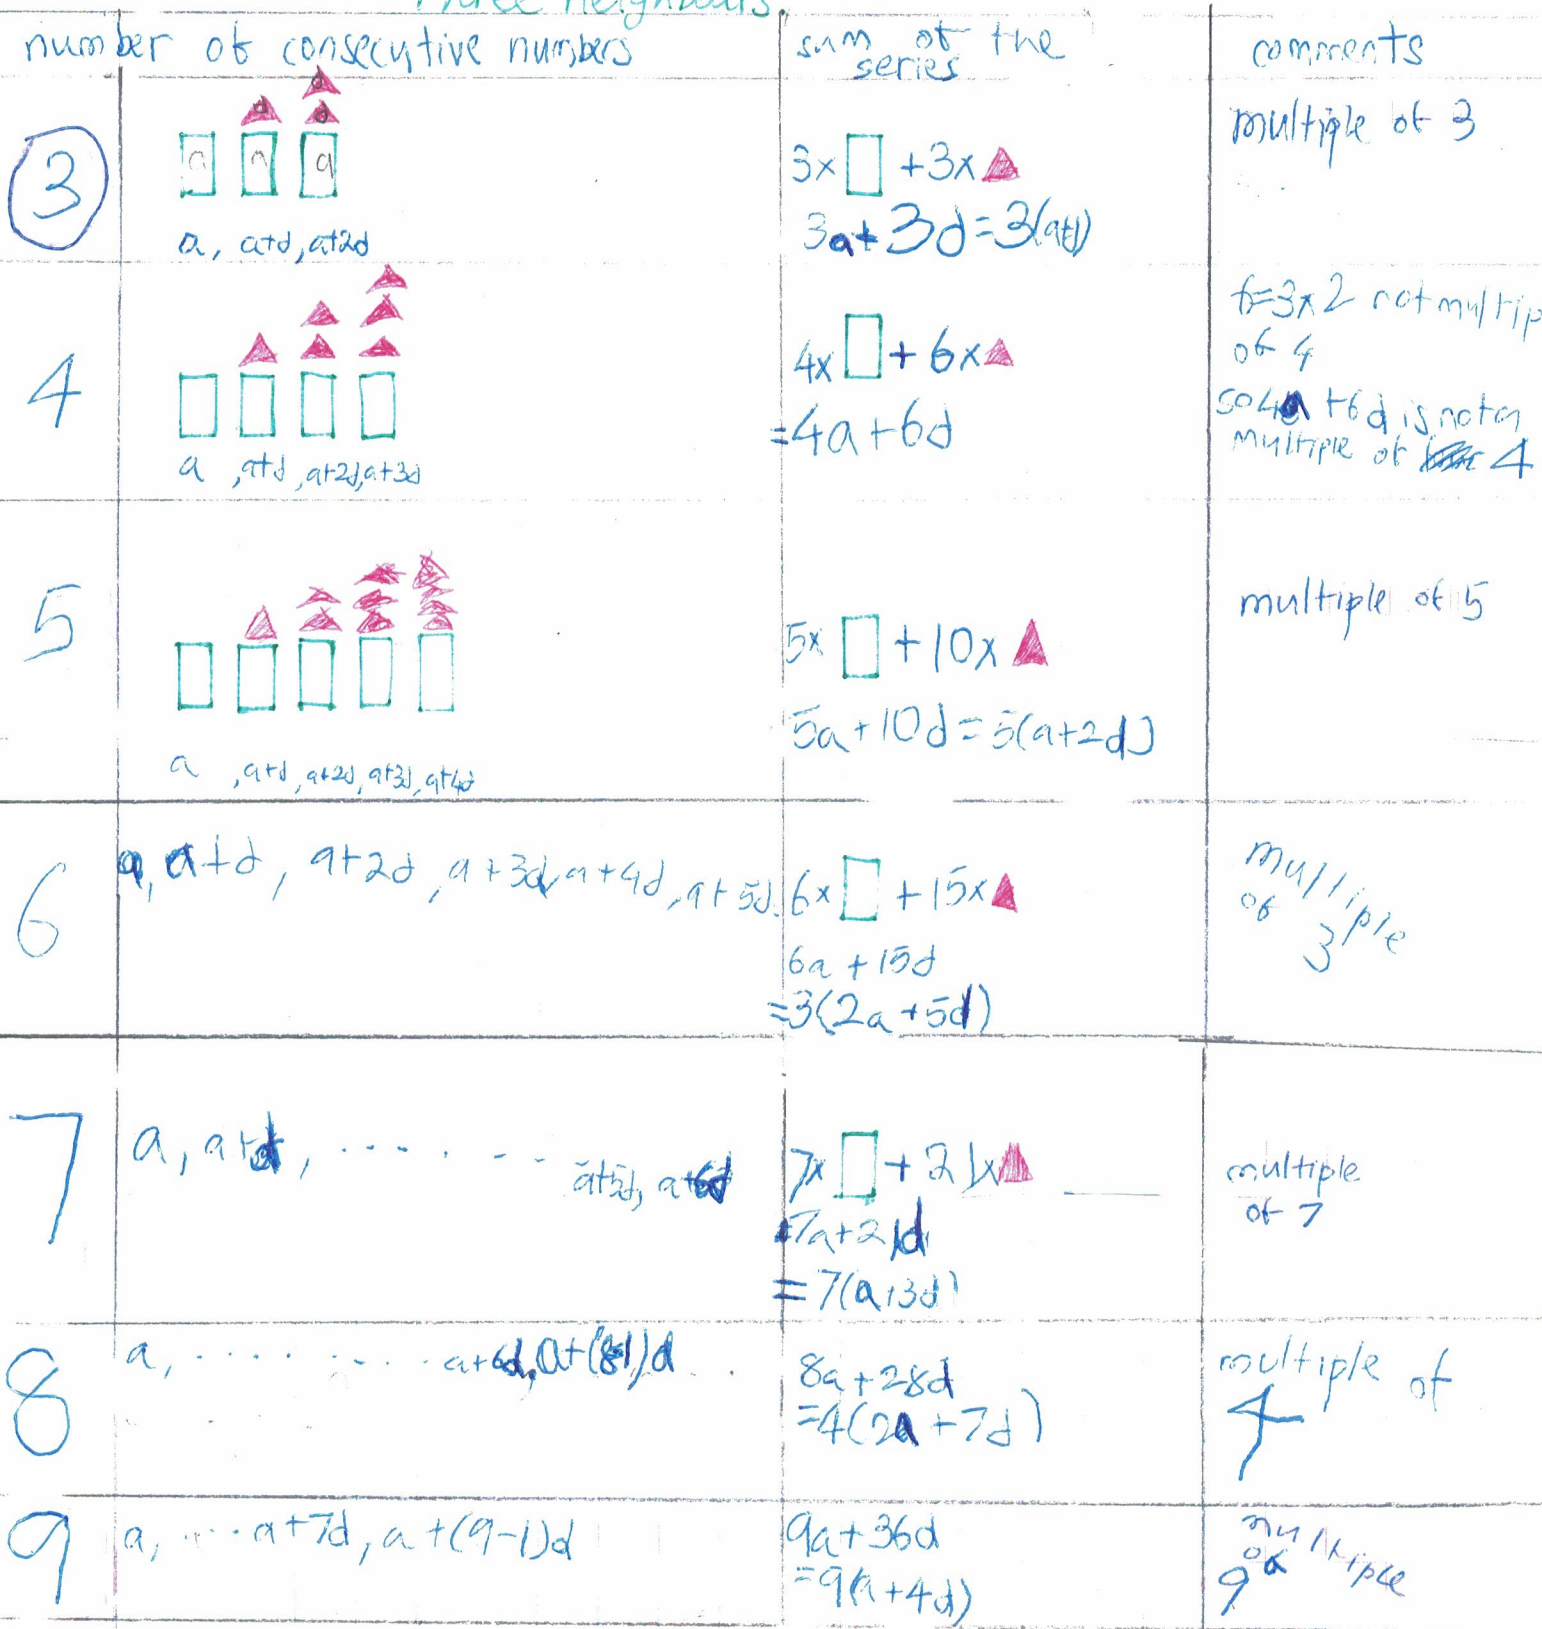 Three Neighbours
number of consecutive numbers
sum of the
series
comments
3
d
d d
a a a
a, a+d, a+2d
3x + 3x
3a + 3d = 3(a+d)
multiple of 3
4
a, a+d, a+2d, a+3d
4x + 6x
= 4a + 6d
6=3x2 not multip
of 4
so 4a + 6d is not a
multiple of 4
5
a, a+d, a+2d, a+3d, a+4d
5x + 10x
5a + 10d = 5(a+2d)
multiple of 5
6
a, a+d, a+2d, a+3d, a+4d, a+5d
6x + 15x
6a + 15d
=3(2a+5d)
multiple
of 3
7
a, a+d, ........ a+5d, a+6d
7x + 21x
=7a+21d
= 7(a+3d)
multiple
of 7
8
a, ........ a+6d, a+(8-1)d
8a+28d
=4(2a+7d)
multiple of
4
9
a, .... a+7d, a+(9-1)d
9a+36d
=9(a+4d)
multiple
of
9